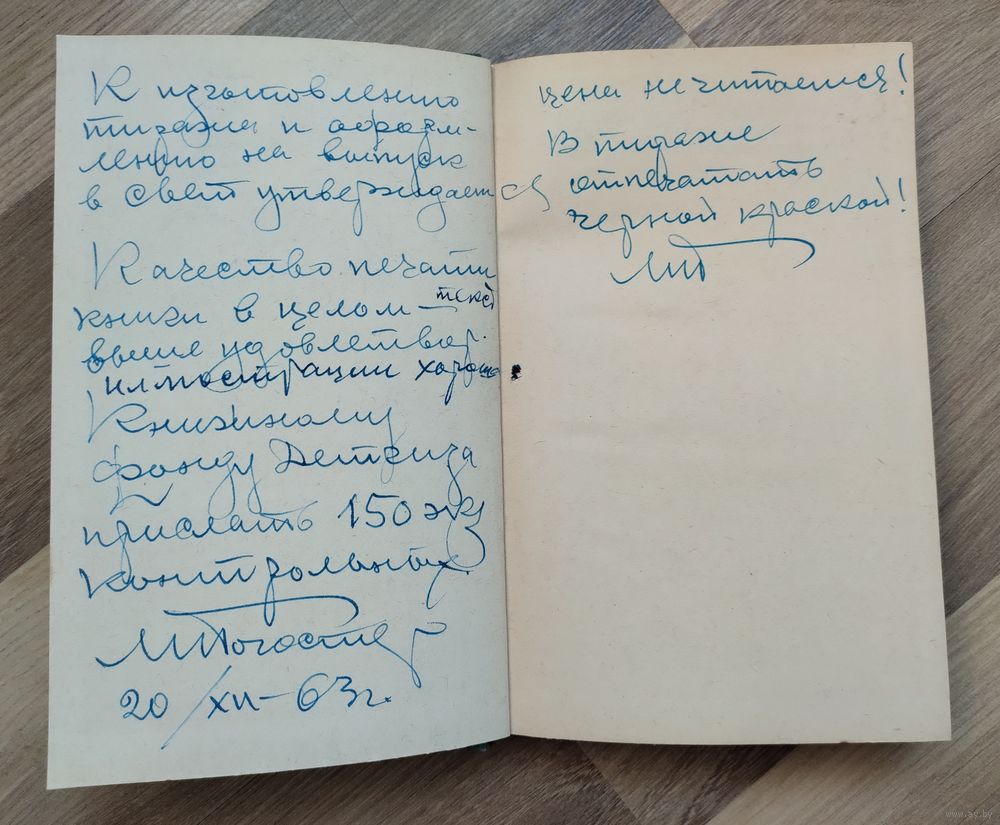 К изготовлению
тиража и оформ-
лению на выпуск
в свет утверждается
Качество печати
книги в целом — текст
выше удовлетвор.
иллюстрации хорошо
Книжному
фонду Детгиза
прислать 150 экз
контрольных.
МПогостер
20/XII-63г.
цена не читается!
В тираже
отпечатать
черной краской!
МП
www.ay.by